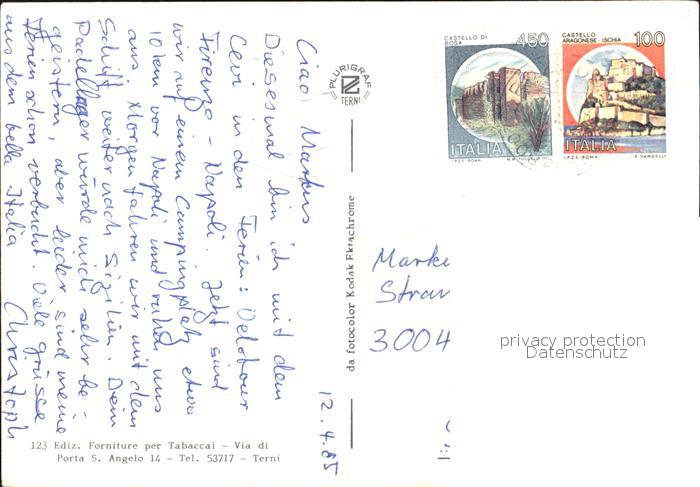 Ciao Markus
Dieses mal bin ich mit dem
Cevi in den Ferien: Velotour
Firenze - Napoli. Jetzt sind
wir auf einem Campingplatz etwa
10 km vor Napoli und ruhen uns
aus. Morgen fahren wir mit dem
Schiff weiter nach Sizilien. Dein
würde mich sehr be-
geistern, aber leider sind meine
Ferien schon verbucht. Viele grüsse
aus dem bella Italia
Christoph
12.4.85
PLURIGRAF
TERNI
da fotocolor Kodak Ektachrome
CASTELLO DI
ROSA
450
ITALIA
I.P.Z.S. ROMA
CASTELLO
ARAGONESE - ISCHIA
100
ITALIA
I.P.Z.S. - ROMA F. VANGELLI
Marku
Stra
3004
privacy protection
Datenschutz
123 Ediz. Forniture per Tabaccai - Via di
Porta S. Angelo 14 - Tel. 53717 - Terni